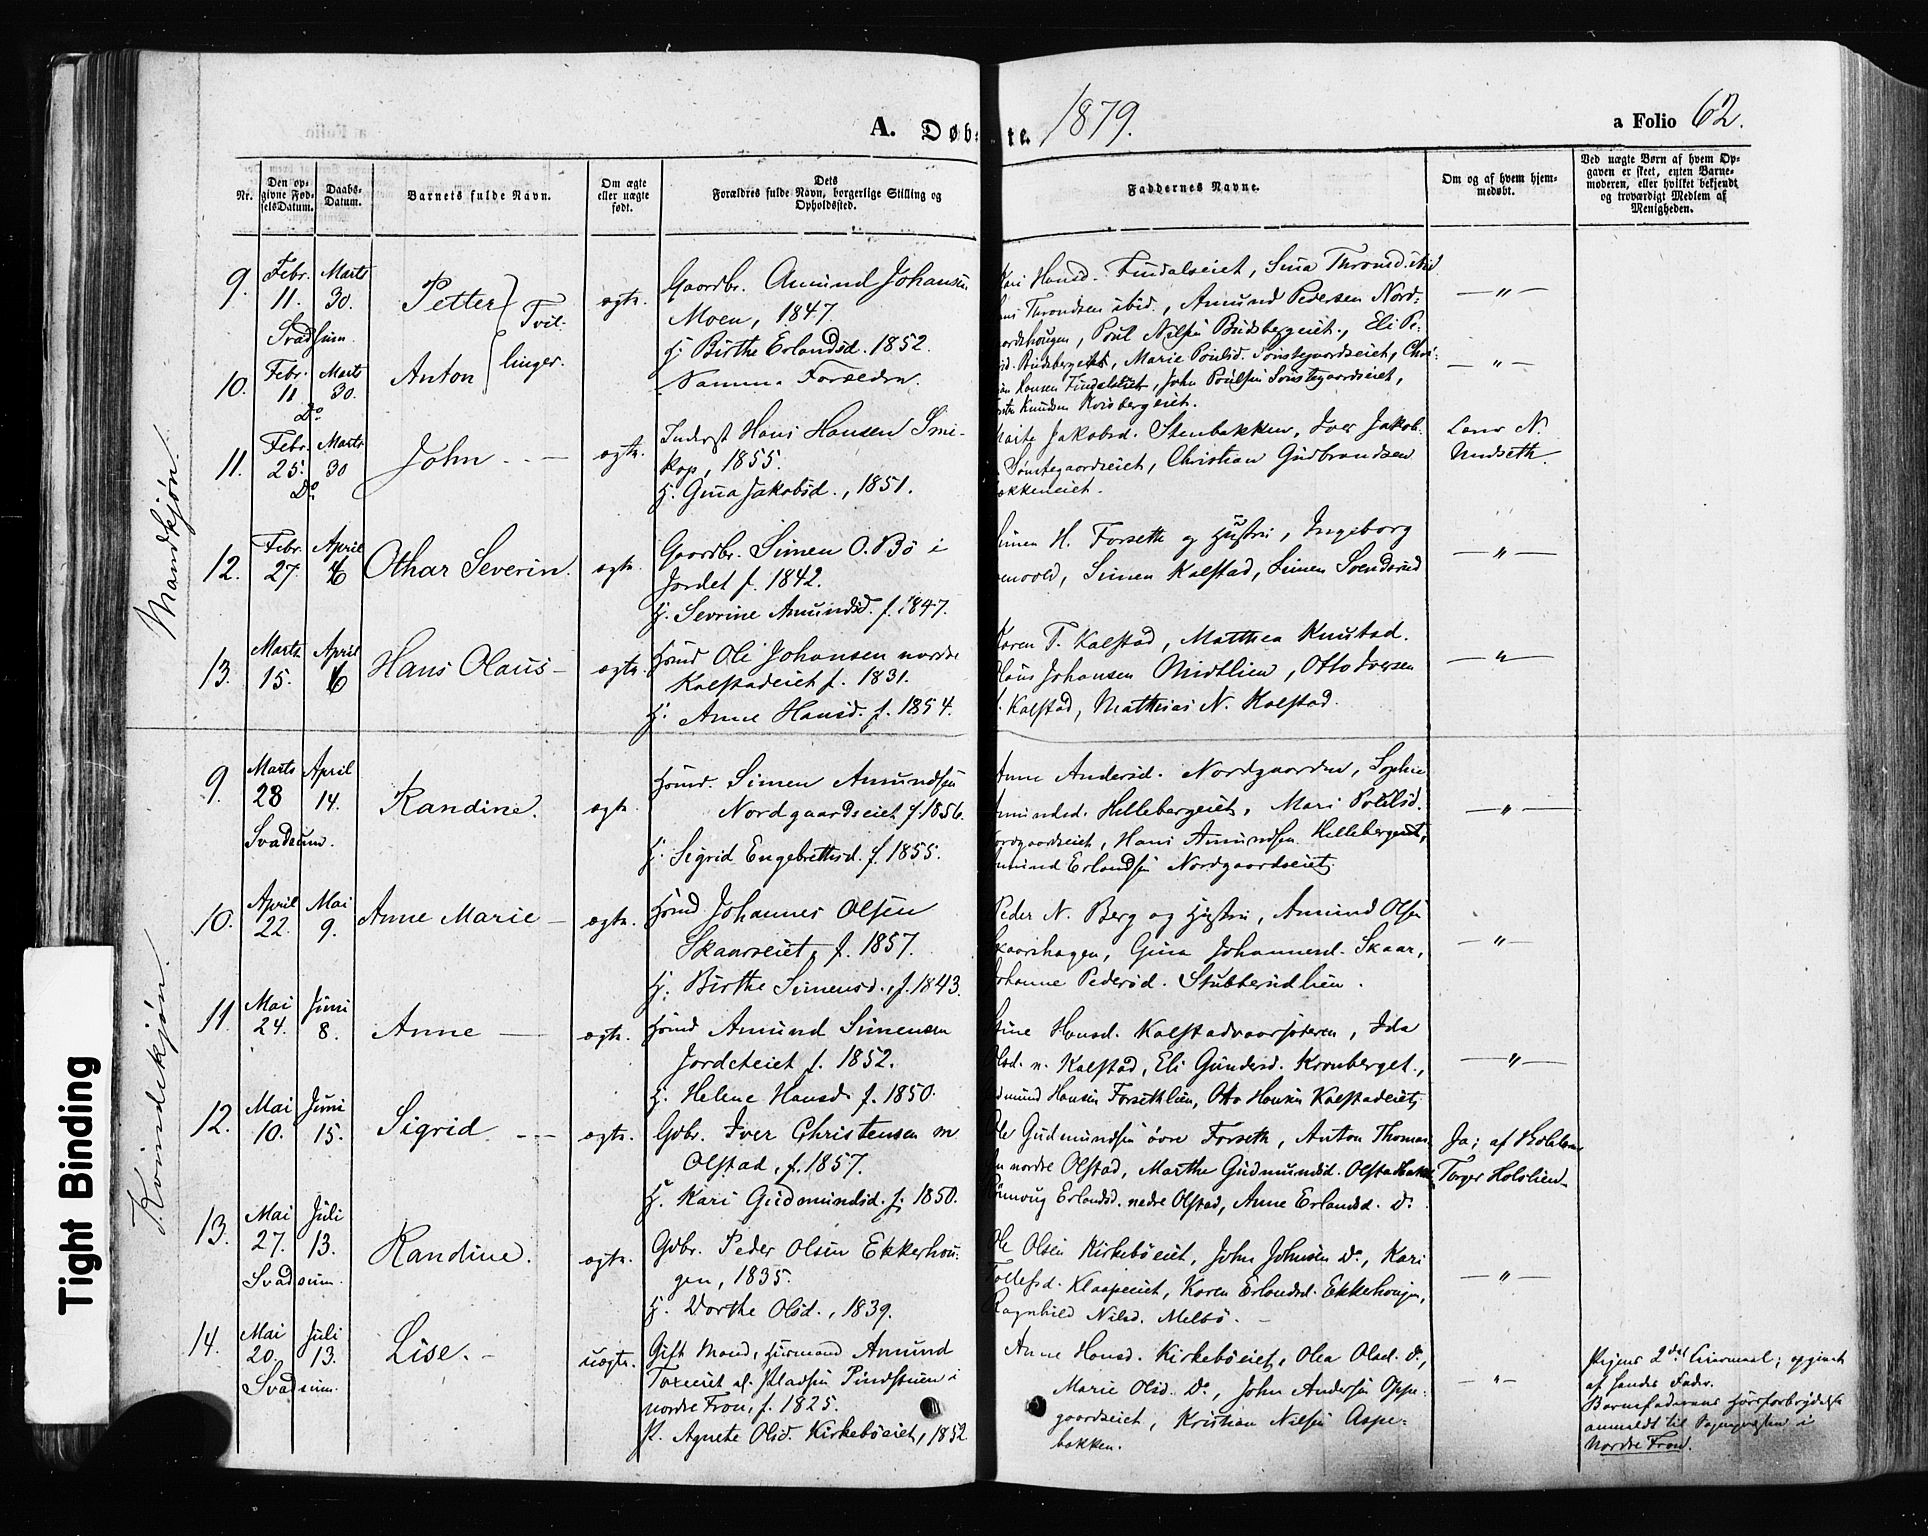 A. Døb te. 1879.
a Folio 62.
Nr.
Den opgivne FødselsDatum.
Daabs-Datum.
Barnets fulde Navn.
Om ægte eller uægte født.
Dets Forældres fulde Navn, borgerlige Stilling og Opholdssted.
Faddernes Navne.
Om og af hvem hjemmedøbt.
Ved uægte Børn af hvem Opgaven er skeet, enten Barnemoderen, eller hvilket bekjendt og troværdigt Medlem af Menigheden.
Mandkjøn.
9. Febr. 11. Marts 30. Svadsum. Petter } Tvil- ægte.
Gaardbr. Amund Johansen
Moen, 1847.
H. Birthe Erlandsd. 1852.
Kari Hansd. Findalseiet, Sina Thronsd. ibid
Throndsen ibid., Amund Pedersen Nord-
Poul Nilsen Budsbergeiet, Eli Pe-
— " —
10. Febr. 11 Marts 30. Do. Anton } linger.
Samme Forældre.
Budsbergeiet, Marie Poulsd. Sønstegaardseiet, Chri-
Hansen Findalseiet, John Poulsen Sønstegaardseiet,
Knudsen Kvisbergeiet.
— " —
11. Febr. 25. Marts 30 Do. John. - — ægte.
Inderst Hans Hansen Smi-
kop, 1855.
H. Gina Jakobsd., 1851.
Jakobsd. Stenbakken, Iver Jakob-
Sønstegaardseiet, Christian Gudbrandsen
Bakkeneiet.
Lær. N.
Undseth.
12. Febr. 27. April 6 Othar Severin. ægte.
Gaardbr. Simen O. Bø i
Jordet f. 1842.
H. Sevrine Amundsd. f. 1847.
Simen H. Forseth og Hustru, Ingeborg
Simen Kalstad, Simen Svendsrud
— " —
13. Marts 15. April 6 Hans Olaus — ægte.
Hmd Ole Johansen nordre
Kalstadeiet f. 1831.
H. Anne Hansd. f. 1854.
Karen T. Kalstad, Matthea Knutsd.
Olaus Johansen Midtlien, Otto Iversen
n. Kalstad, Mathias N. Kalstad.
— " —
Kvindekjøn.
9. Marts 28 April 14. Svadsum. Randine. ægte
Hmd. Simen Amundsen
Nordgaardseiet f. 1856.
H. Sigrid Engebrettsd. f. 1855.
Anne Andersd. Nordgaarden, Sophie
Amundsd. Hillebergeiet, Mari Poulsd.
Nordgaardseiet, Hans Amundsen Hillebergeiet,
Amund Erlandsen Nordgaardseiet.
— " —
10. April 22. Mai 9. Anne Marie — ægte.
Hmd Johannes Olsen
Skaarseiet, f. 1857.
H. Birthe Simensd., f. 1843.
Peder N. Berg og Hustru, Amund Olsen
Skaarshagen, Gina Johannesd. Skaar,
Johanne Pedersd. Stubberudlien.
— " —
11. Mai 24. Juni 8. Anne — ægte.
Hmd Amund Simensen
Jordeteiet f. 1852.
H. Helene Hansd. f. 1850.
Stine Hansd. Kalstadvaarsæteren, Ida
Olsd. n. Kalstad, Eli Gundersd. Kronberget,
Hansen Forsethlien, Otto Hansen Kalstadeiet,
— " —
12. Mai 10. Juni 15. Sigrid. - — ægte.
Gdbr. Iver Christensen n
Olstad, f. 1857.
H. Kari Gudmundsd. f. 1850.
Ole Gudmundsen øvre Forseth, Anton Thomas-
en nordre Olstad, Marthe Gudmundsd. Olstadbakk.
Rønnoug Erlandsd. nedre Olstad, Anne Erlandsd. Do.
Ja; af
Torger Holslien.
13. Mai 27. Juli 13. Svadsum. Randine. ægte.
Gdbr. Peder Olsen Ekkerhou-
gen, 1835.
H. Dorthe Olsd., 1839.
Ole Olsen Kirkebøeiet, John Johnsen Do, Kari
Tollefsd. Klaapeiet, Karen Erlandsd. Ekkehougen,
Ragnhild Nilsd. Melbø. —
— " —
14. Mai 20. Juli 13. Svadsum. Lise. - uægte.
Gift Mand, Huusmand Amund
Plads Pindstuen i
nordre Fron, f. 1825.
P. Agnete Olsd. Kirkebøeiet, 1852
Anne Hansd. Kirkebøeiet, Olea Olsd. Do,
Marie Olsd. Do, John Andersen Oppe-
gaardseiet, Kristian Nilsen Aspe-
bakken.
— " —
Pigens 2det Leiermaal; opgivet
af hendes Fader.
Barnefaderens
anmeldt til Sognepresten i
Nordre Fron.
Tight Binding